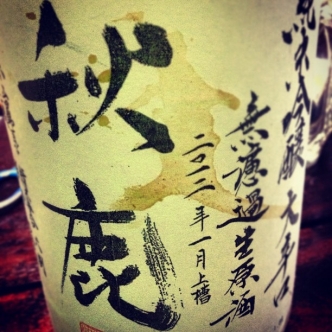 純米吟醸大辛口
無濾過生原酒
二〇一二年一月上槽
秋鹿